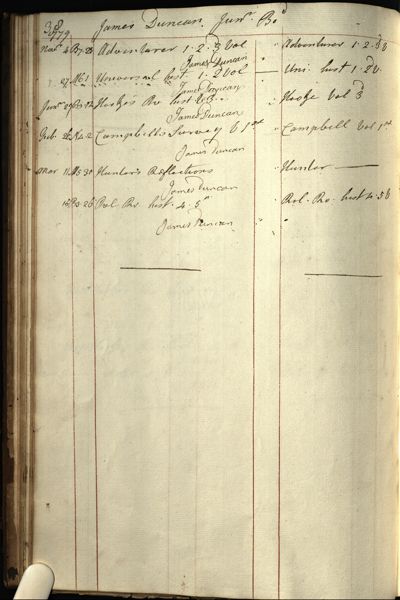 38 James Duncan Junr. Bo.
1779
Novr 4 B7.28 Adventurer 1. 2. 3 Vol " Adventurer 1. 2. 3d V
James Duncan
27 M6.1 Universal hist 1. 2 Vol — Uni. hist 1. 2d V.
James Duncan
Janr Hooke's Ro hist V 3 " Hooke Vol 3d
James Duncan
Feb. Campbell's Survey V 1st " Campbell Vol 1st
James Duncan
Mar 11 Hunter's Reflections " Hunter —
James Duncan
Rol. Ro hist. 4. 5th " Rol. Ro. hist 4. 5th
James Duncan